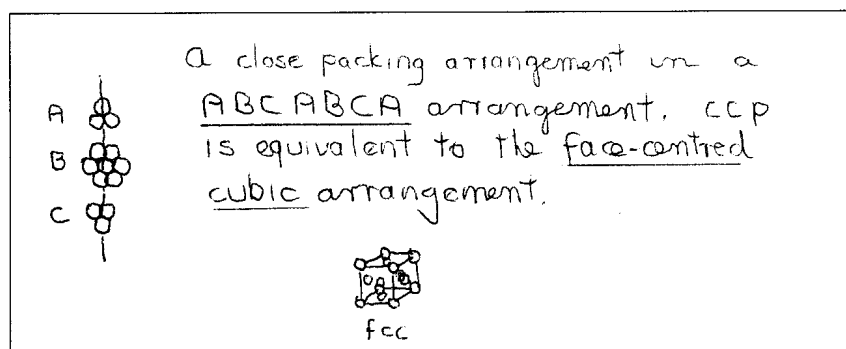 a close packing arrangement in a
A
ABCABCA arrangement. ccp
B
is equivalent to the face-centred
C
cubic arrangement.
fcc